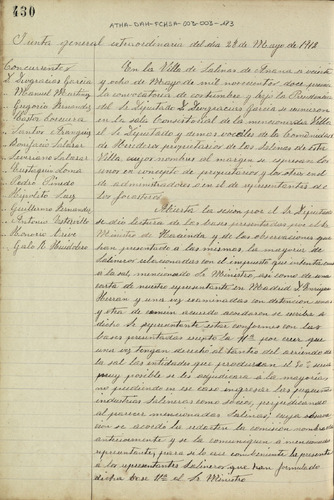 430
ATHA-DAH-FCHSA-003-003-183
Junta general extraordinaria del día 28 de Mayo de 1912
Concurrentes
D. Deogracias García
Manuel Martínez
Gregorio Fernandez
Pastor
Santos Frangüiz
Bonifacio Salazar
Severiano Salazar
Eustaquio Loma
Pedro Pinedo
Hipolito Luiz
Guillermo Fernandez
Antonio
Honorio
Galo R. Huidobro
En la Villa de Salinas de Añana a veinte
y ocho de Mayo de mil novecientos doce, previa
convocatoria de costumbre y bajo la Presidencia
del Sr. Diputado D. Deogracias García se reunieron
en la sala Consistorial de la mencionada Villa
el Sr. Diputado y demas vocales de la Comunidad
de Herederos propietarios de las Salinas de esta
Villa, cuyos nombres al margen se espresan los
unos en concepto de propietarios y los otros en el
de administradores o en el de representantes de
los forasteros
Abierta la sesion por el Sr. Diputado
se dio lectura de las bases presentadas por el Sr.
Ministro de Hacienda y de las observaciones que
han presentado a las mismas, la mayoria de
Salineros relacionadas con el impuesto que intenta
a la sal mencionado Sr. Ministro, asi como de una
carta de nuestro representante en Madrid D. Enrique
Herran y una vez examinadas con detencion una
y otra de comun acuerdo acordaron se escriba a
dicho Sr. representante estar conformes con las
bases presentadas excepto la 11ª por creer que
una vez tengan derecho al tanteo del arriendo de
la sal las entidades que produzcan el 30 % sera
muy posible se les adjudicara a la mayoria
no pudiendo en ese caso ingresar las pequeñas
industrias Salineras como socios, perjudicando
al parecer mencionadas Salinas; cuya observa
cion se acordo la redacten la comision nombrada
anteriormente y se la comuniquen a mencionado
representante, para si lo cree conveniente la presente
a los representantes Salineros que han formulado
dicha base 11ª al Sr. Ministro